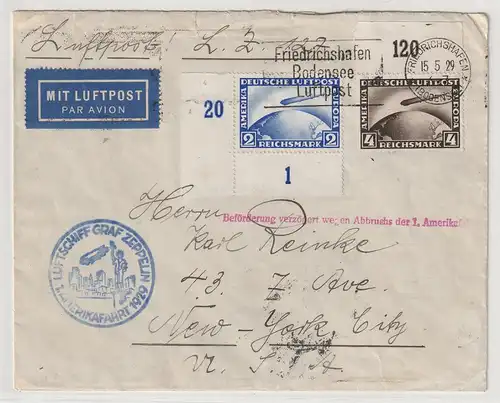 Luftpost! L. Z. 127
120
Friedrichshafen
Bodensee
Luftpost
FRIEDRICHSHAFEN
15.5.29
(BODENSEE)
MIT LUFTPOST
PAR AVION
20
DEUTSCHE LUFTPOST
AMERIKA
EUROPA
2 2
REICHSMARK
DEUTSCHE LUFTPOST
AMERIKA
EUROPA
4 4
REICHSMARK
1
Herrn
Beförderung verzögert wegen Abbruchs der 1. Amerikaf
Karl Reinke
43 7 Ave.
New-York City
U. S. A
LUFTSCHIFF GRAF ZEPPELIN
1. AMERIKAFAHRT 1929